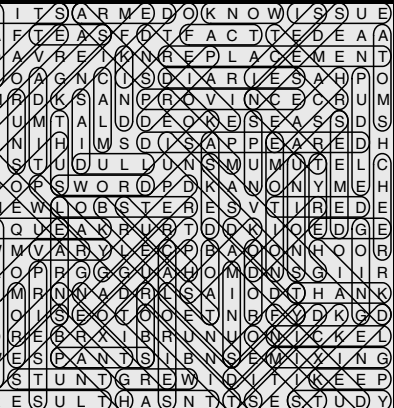 I T S A R M E D O K N O W I S S U E
F T E A S F D T F A C T T E D E A A
A V R E I K N R E P L A C E M E N T
O A G N C I S D I A R I E S A H P O
R D K S A N P R O V I N C E C R U M
U M T A L D D E O K E S E A S S D S
N I H I M S D I S A P P E A R E D H
S T U D U L L U N S M U M U T E L C
O P S W O R D P D K A N O N Y M E H
E W L O B S T E R E S V T I R E D E
Q U E A K R U R T D D K I O E D G E
M V A R Y L E C P B A O O N H O O R
O P R G G G U A H O M D N S G I I R
M R N N A D R L S A I O D T H A N K
O I S E O T O O E T N R F Y D K G D
R E B R X I B R U N U O N I C K E L
E S P A N T S I B N S E M I X I N G
S T U N T G R E W I D I T I K E E P
E S U L T H A S N T T S E S T U D Y